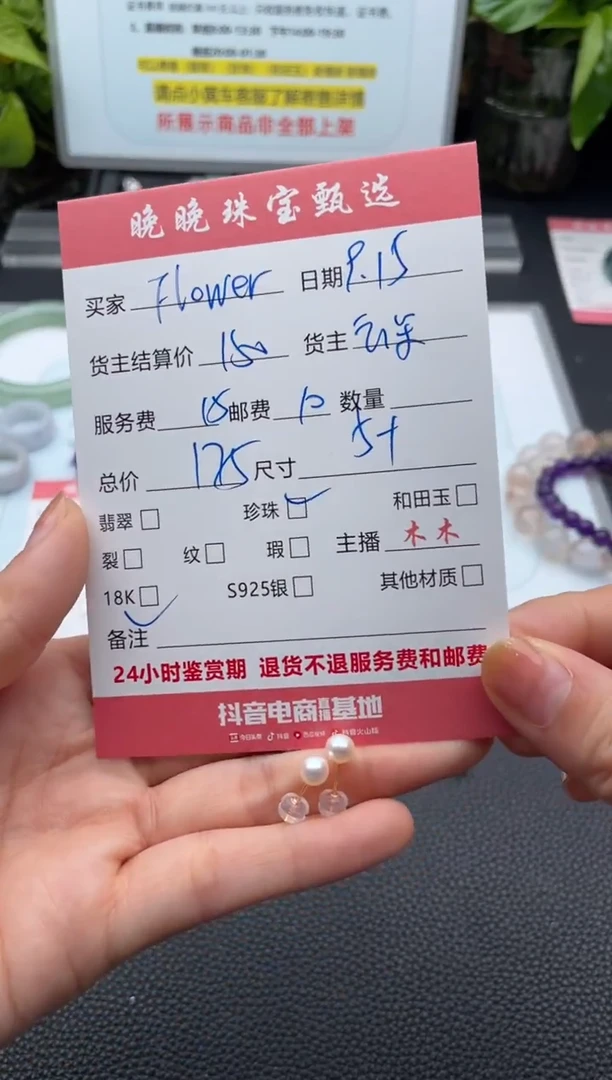 请点小黄车客服了解商品详情
所展示商品非全部上架
晚晚珠宝甄选
买家 Flower 日期 9.15
货主结算价 150 货主
服务费 15 邮费 10 数量
总价 175 尺寸 5+
翡翠 珍珠 和田玉
裂 纹 瑕 主播 木木
18K S925银 其他材质
备注
24小时鉴赏期 退货不退服务费和邮费
抖音电商直播基地
今日头条 抖音 西瓜视频 抖音火山版